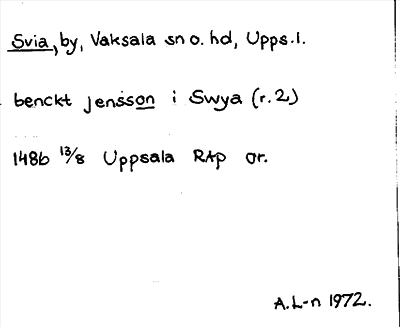 Svia, by, Vaksala sn o. hd, Upps. l.
benckt jensson i Swya (r. 2)
1486 13/8 Uppsala RAp or.
A. L-n 1972.